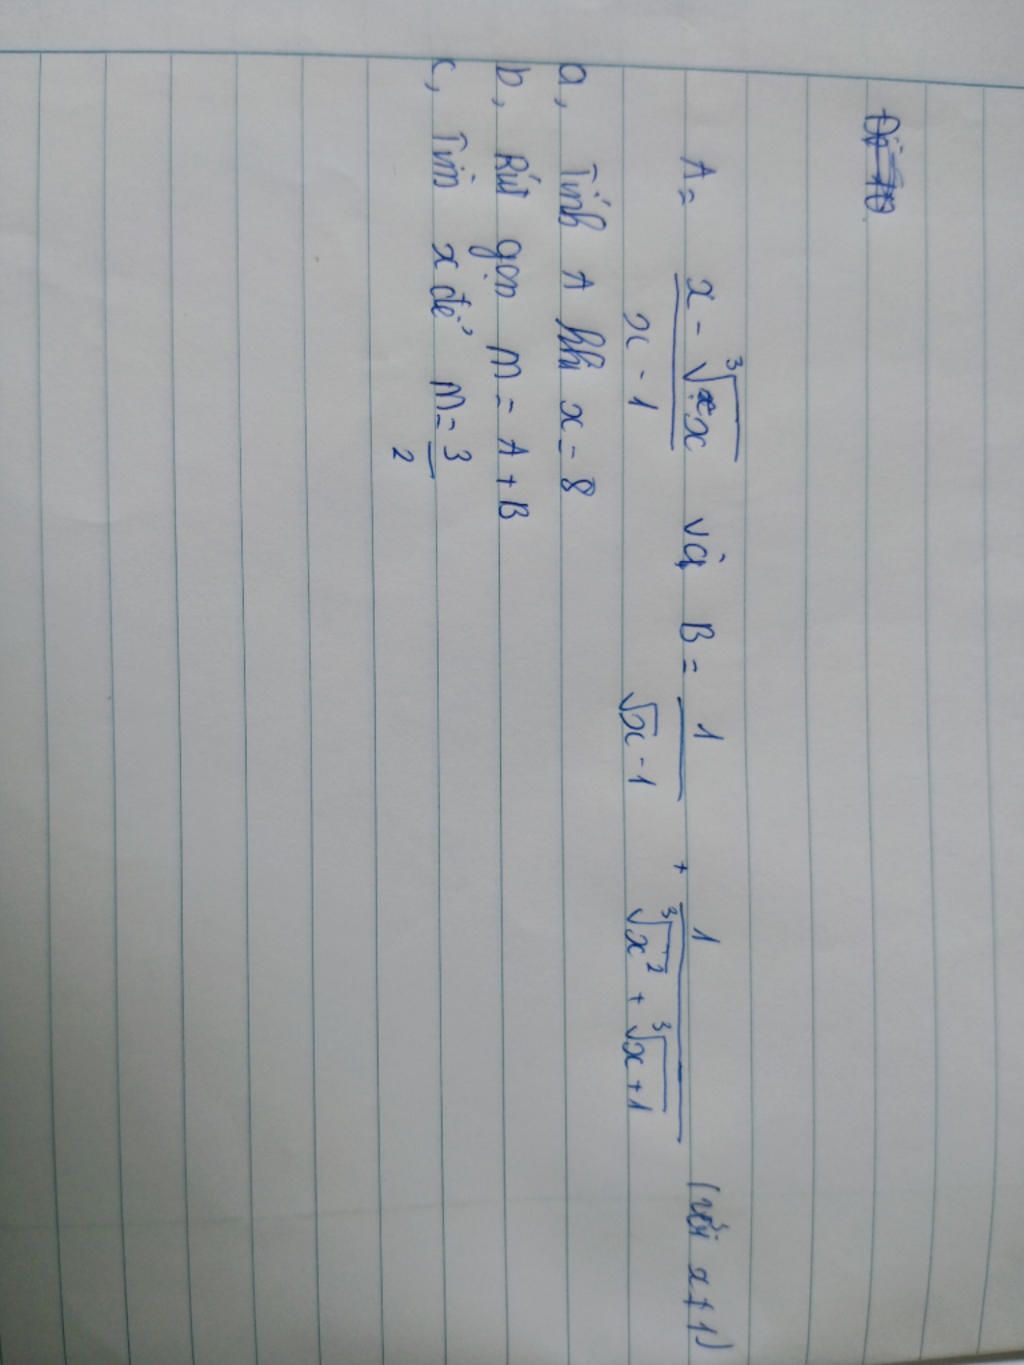 A = \frac{x - \sqrt[3]{x}}{x - 1} và B = \frac{1}{\sqrt{x} - 1} + \frac{1}{\sqrt[3]{x^2} + \sqrt[3]{x + 1}} (với x ≠ 1)
a, Tính A khi x = 8
b, Rút gọn M = A + B
c, Tìm x để M = \frac{3}{2}